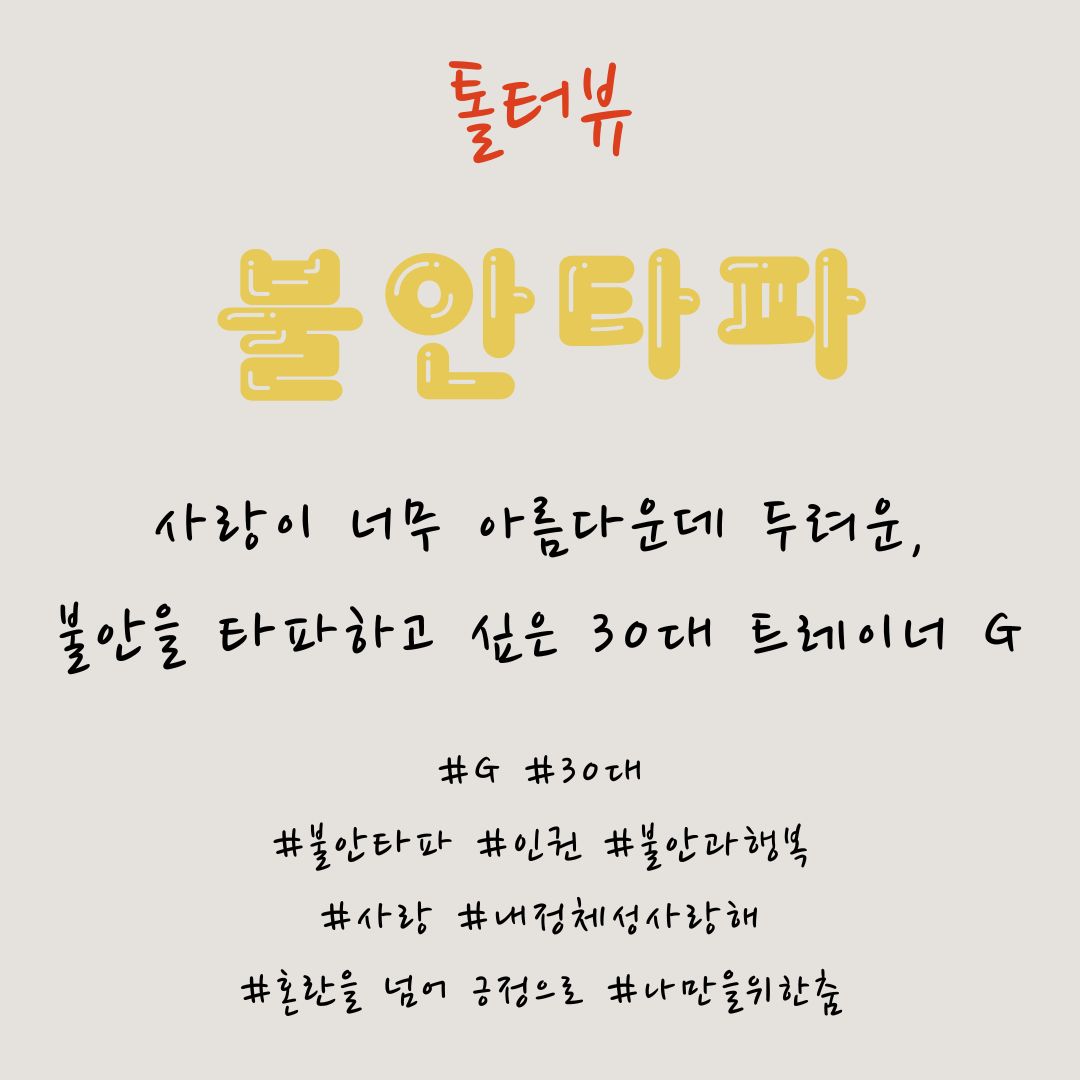 톨터뷰
불안타파
사랑이 너무 아름다운데 두려운,
불안을 타파하고 싶은 30대 트레이너 G
#G #30대
#불안타파 #인권 #불안과행복
#사랑 #내정체성사랑해
#혼란을 넘어 긍정으로 #나만을위한춤